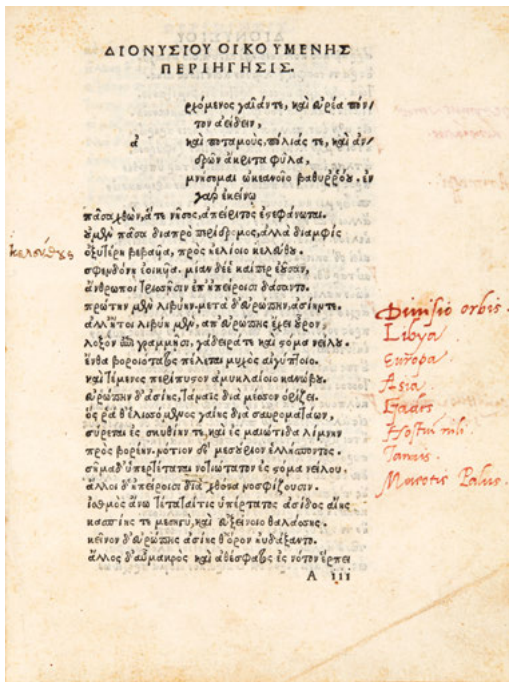 ΔΙΟΝΥΣΙΟΥ ΟΙΚΟΥΜΕΝΗΣ
ΠΕΡΙΗΓΗΣΙΣ.
ρχόμενος γαῖάν τε, καὶ εὐρέα πόν
τον ἀείδειν,
ἀ καὶ ποταμοὺς, πόλιάς τε, καὶ ἀν
δρῶν ἄκριτα φῦλα,
μνήσομαι ὠκεανοῖο βαθυῤῥόου. ἐν
γὰρ ἐκείνῳ
πᾶσα χθὼν, ἅτε νῆσος, ἀπείριτος ἐστεφάνωται.
οὐ μὴν πᾶσα διαπρὸ περίδρομος, ἀλλὰ διαμφὶς
ὀξυτέρη βεβαυῖα, πρὸς ἠελίοιο κελεύθου.
σφενδόνῃ ἐοικυῖα. μίαν δέ ἑ καίπερ ἐοῦσαν,
ἄνθρωποι τρισσῇσιν ἐπ' ἠπείροισι δάσαντο.
πρώτην μὲν λιβύην. μετὰ δ' εὐρώπην, ἀσίην τε.
ἀλλ' ἤτοι λιβύη μὲν, ἀπ' εὐρώπης ἔχει οὖρον.
λοξὸν ἐπὶ γραμμῇσι, γάδειρά τε καὶ στόμα νείλου.
ἔνθα βορειότατος πέλεται μυχὸς αἰγύπτοιο.
καὶ τέμενος περίπυστον ἀμυκλαίοιο κανώβου.
εὐρώπην δ' ἀσίης, τάναϊς διὰ μέσσον ὁρίζει.
ὅς ῥά θ' ἑλισσόμενος γαίης διὰ σαυροματάων,
σύρεται ἐς σκυθίην τε, καὶ ἐς μαιώτιδα λίμνην
πρὸς βορέην. νότιον δὲ μεσούριον ἑλλήσποντος.
σῆμα δ' ὑπερτέταται νοτιώτατον ἐς στόμα νείλου.
ἄλλοι δ' ἠπείροισι διὰ χθόνα νοσφίζουσιν.
ἰσθμὸς ἄνω τέταταί τις ὑπέρτατος ἀσίδος αἴης
κασπίης τε μεσηγὺ, καὶ εὐξείνοιο θαλάσσης.
κεῖνον δ' εὐρώπης ἀσίης θ' ὅρον ηὐδάξαντο.
ἄλλος δ' αὖ μακρὸς καὶ ἀθέσφατος ἐς νότον ἕρπει
A III
κελεύθους
Diuisio orbis.
Libya
Europa
Asia
Gades
Hostiū nili.
Tanais.
Maeotis Palus.